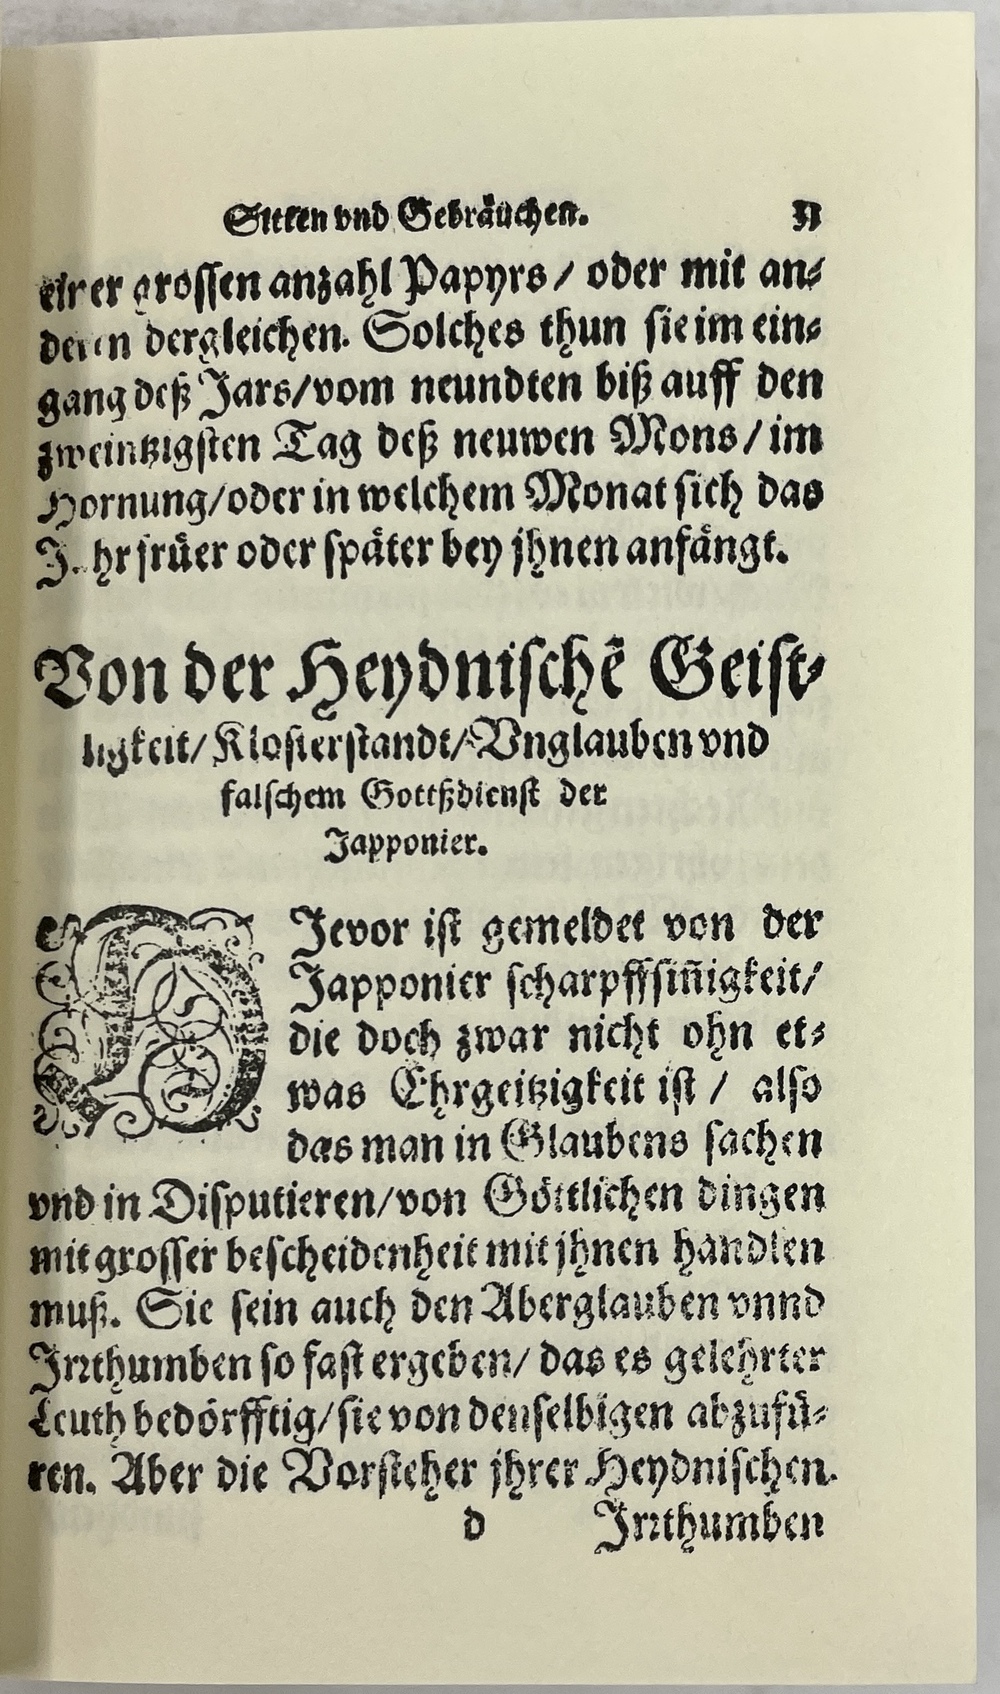 Sitten vnd Gebräuchen. 31
einer grossen anzahl Papyrs / oder mit an⸗
deren dergleichen. Solches thun sie im ein⸗
gang deß Jars/vom neundten biß auff den
zweintzigsten Tag deß neuwen Mons / im
Hornung/oder in welchem Monat sich das
Jahr früer oder später bey jhnen anfängt.
Von der Heydnischē Geist⸗
ligkeit/ Klosterstandt/ Vnglauben vnd
falschem Gottßdienst der
Japponier.
DJevor ist gemeldet von der
Japponier scharpffsiñigkeit/
die doch zwar nicht ohn et⸗
was Ehrgeitzigkeit ist / also
das man in Glaubens sachen
vnd in Disputieren/von Göttlichen dingen
mit grosser bescheidenheit mit jhnen handlen
muß. Sie sein auch den Aberglauben vnnd
Jrrthumben so fast ergeben/ das es gelehrter
Leuth bedörfftig/ sie von denselbigen abzufü⸗
ren. Aber die Vorsteher jhrer Heydnischen
d Jrrthumben